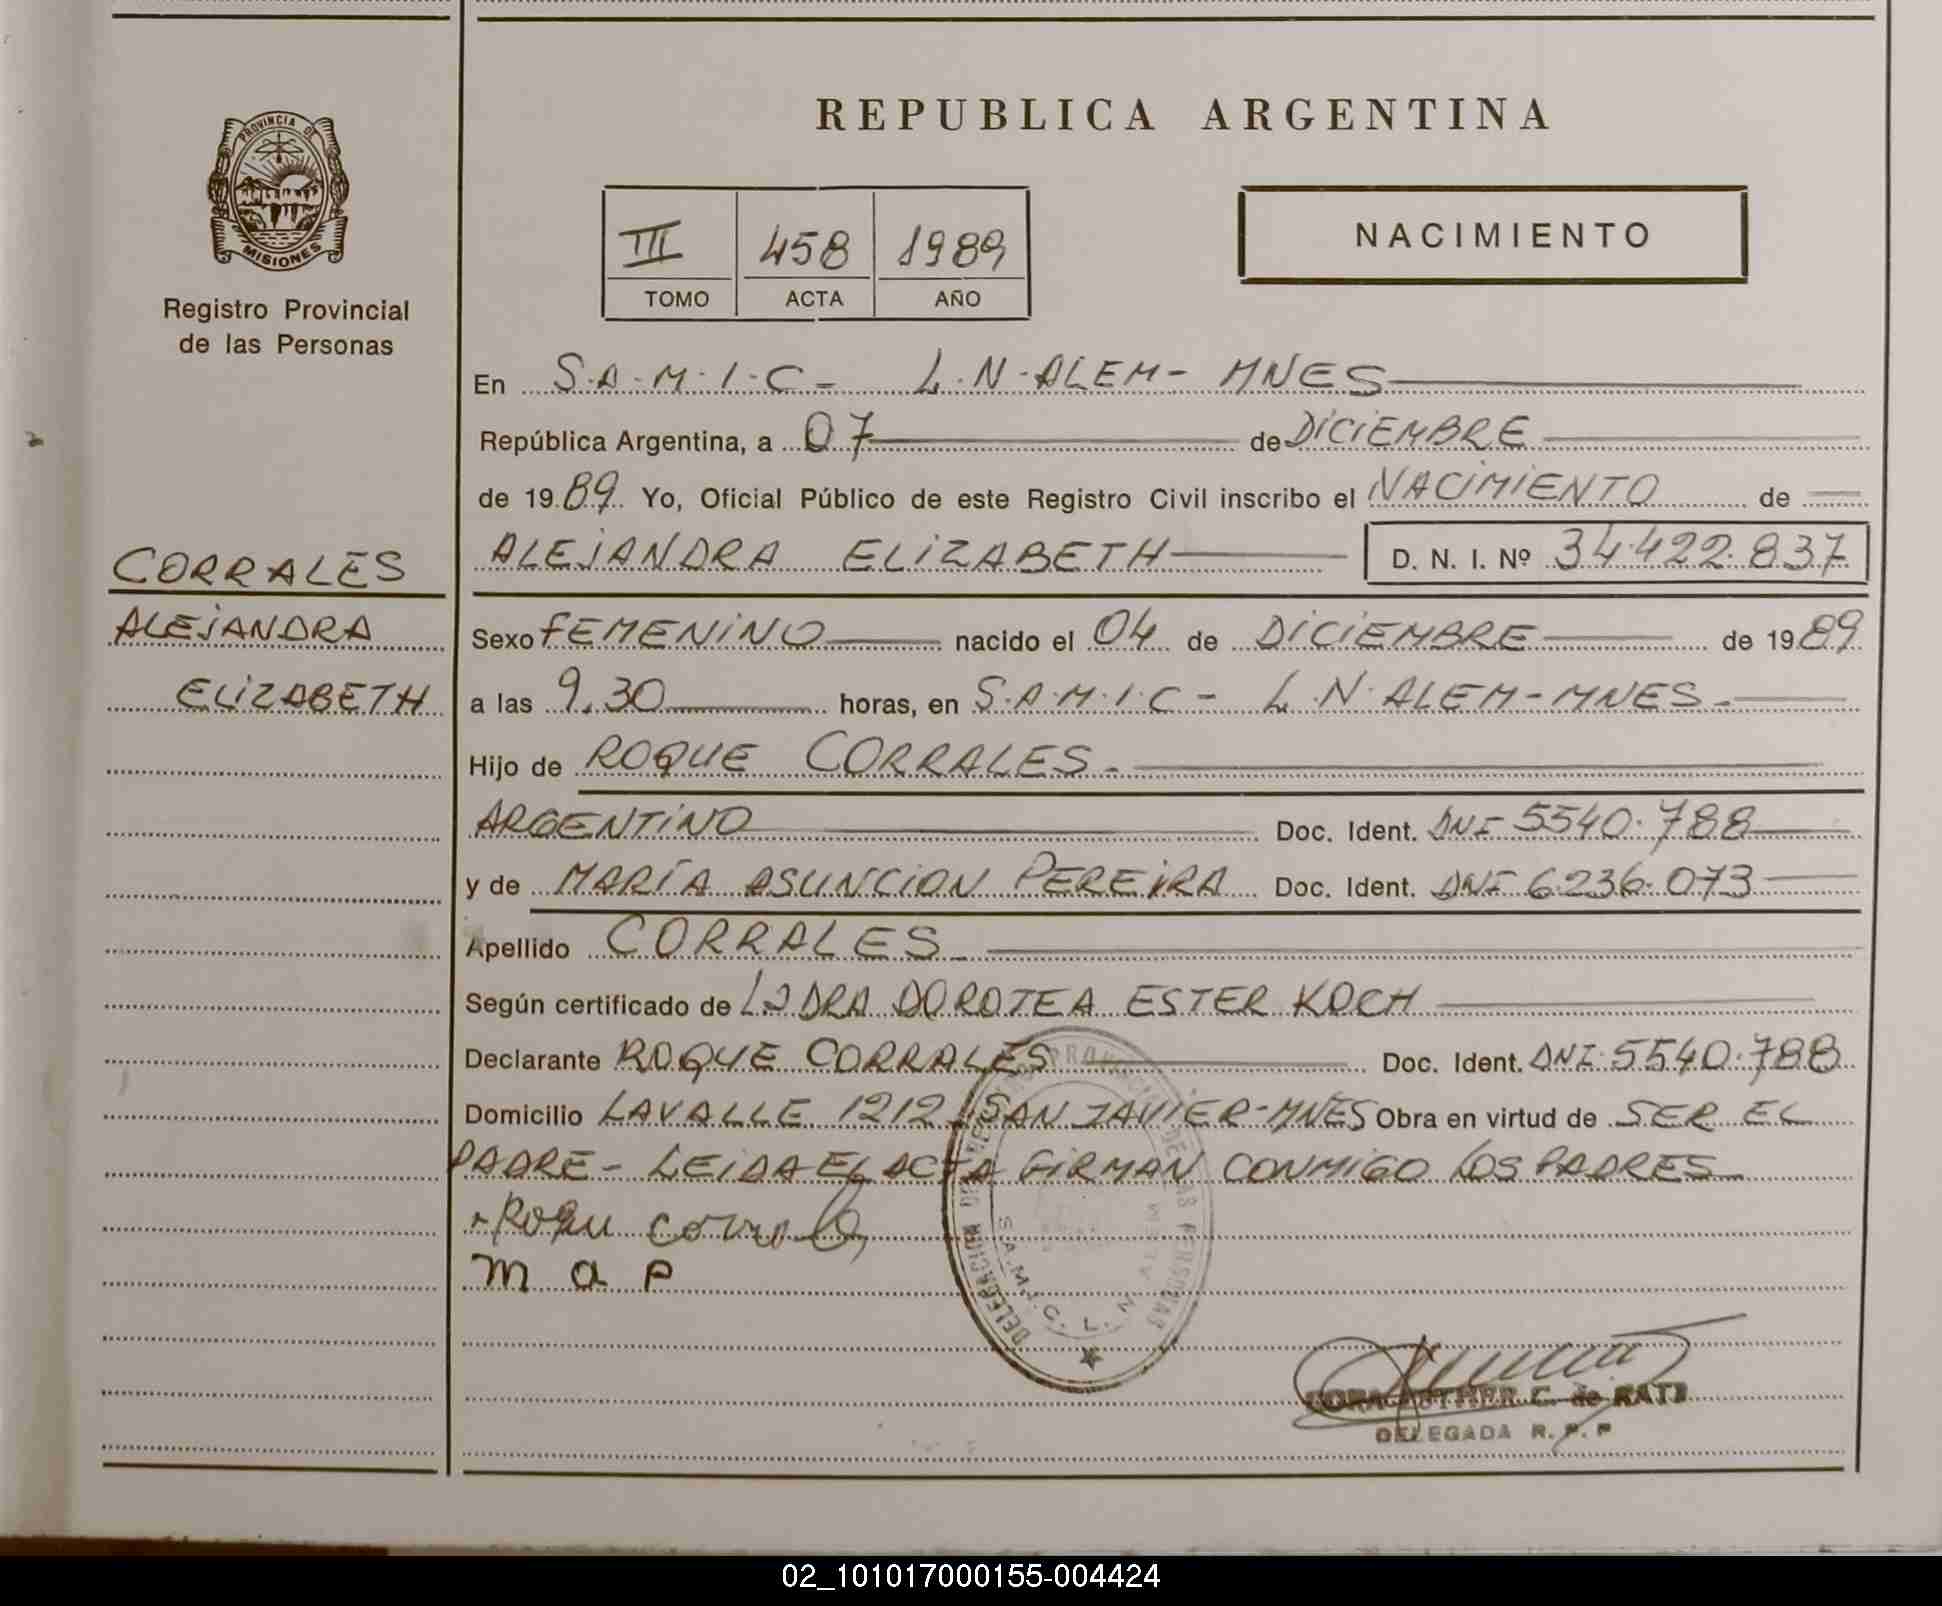 PROVINCIA DE
MISIONES
Registro Provincial
de las Personas
CORRALES
ALEJANDRA
ELIZABETH
REPUBLICA ARGENTINA
III 458 1989
TOMO ACTA AÑO
NACIMIENTO
En S.A.M.I.C- L.N.ALEM- MNES
República Argentina, a 07 de DICIEMBRE
de 1989 Yo, Oficial Público de este Registro Civil inscribo el NACIMIENTO de
ALEJANDRA ELIZABETH D. N. I. Nº 34.422.837
Sexo FEMENINO nacido el 04 de DICIEMBRE de 1989
a las 9.30 horas, en S.A.M.I.C- L.N.ALEM-MNES-
Hijo de ROQUE CORRALES-
ARGENTINO Doc. Ident. DNI 5540.788
y de MARÍA ASUNCION PEREIRA Doc. Ident. DNI 6236.073
Apellido CORRALES-
Según certificado de DRA DOROTEA ESTER KOCH
Declarante ROQUE CORRALES Doc. Ident. DNI.5540.788
Domicilio LAVALLE 1212 SAN JAVIER-MNES Obra en virtud de SER EL
PADRE- LEIDA EL ACTA FIRMAN CONMIGO LOS PADRES
m a p
S.A.M.I.C. L. N.
DELEGADA R. P. P
02_101017000155-004424